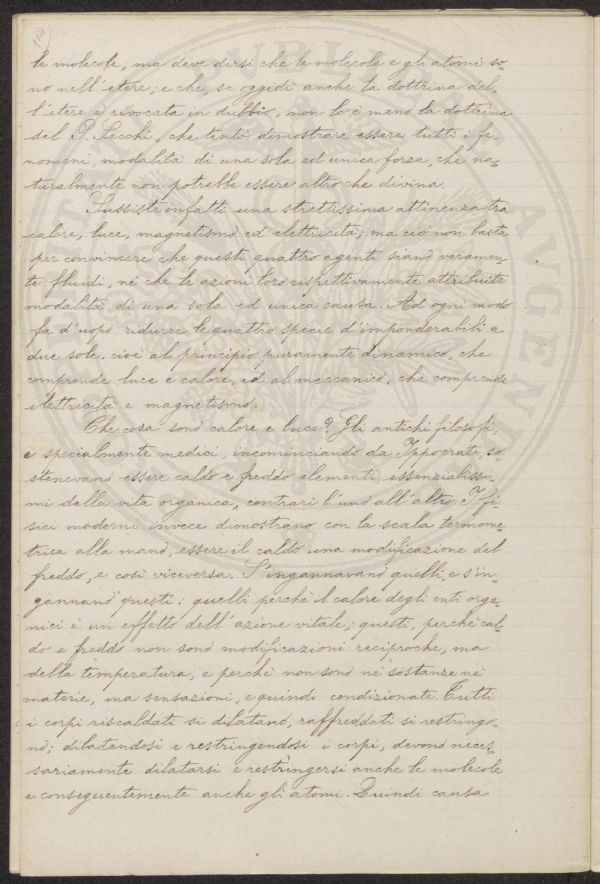 le molecole, ma deve dirsi che le molecole e gli atomi so-
no nell'etere; e che, se oggidì anche la dottrina del-
l'etere è rivocata in dubbio, non lo è meno la dottrina
del P. Secchi, che tentò dimostrare essere tutti i fe-
nomeni, modalità di una sola ed unica forza, che na-
turalmente non potrebbe essere altro che divina.
Sussiste infatti una strettissima attinenza tra
calore, luce, magnetismo ed elettricità; ma ciò non basta
per convincere che questi quattro agenti siano veramen-
te fluidi, nè che le azioni loro rispettivamente attribuite
modalità di una sola ed unica causa. Ad ogni modo
fa d'uopo ridurre le quattro specie d'imponderabili a
due sole, cioè al principio puramente dinamico, che
comprende luce e calore, ed al meccanico, che comprende
elettricità e magnetismo.
Che cosa sono calore e luce? Gli antichi filosofi,
e specialmente medici, incominciando da Ippocrate, so-
stenevano essere caldo e freddo elementi essenzialissi-
mi della vita organica, contrari l'uno all'altro. I fi-
sici moderni invece dimostrano con la scala termome-
trica alla mano, essere il caldo una modificazione del
freddo, e così viceversa. S'ingannavano quelli, e s'in-
gannano questi: quelli perchè il calore degli enti orga-
nici è un effetto dell'azione vitale; questi, perchè cal-
do e freddo non sono modificazioni reciproche, ma
della temperatura, e perchè non sono nè sostanze nè
materie, ma sensazioni, e quindi condizionate. Tutti
i corpi riscaldati si dilatano, raffreddati si restringo-
no; dilatandosi e restringendosi i corpi, devono neces-
sariamente dilatarsi e restringersi anche le molecole
e conseguentemente anche gli atomi. Quindi causa